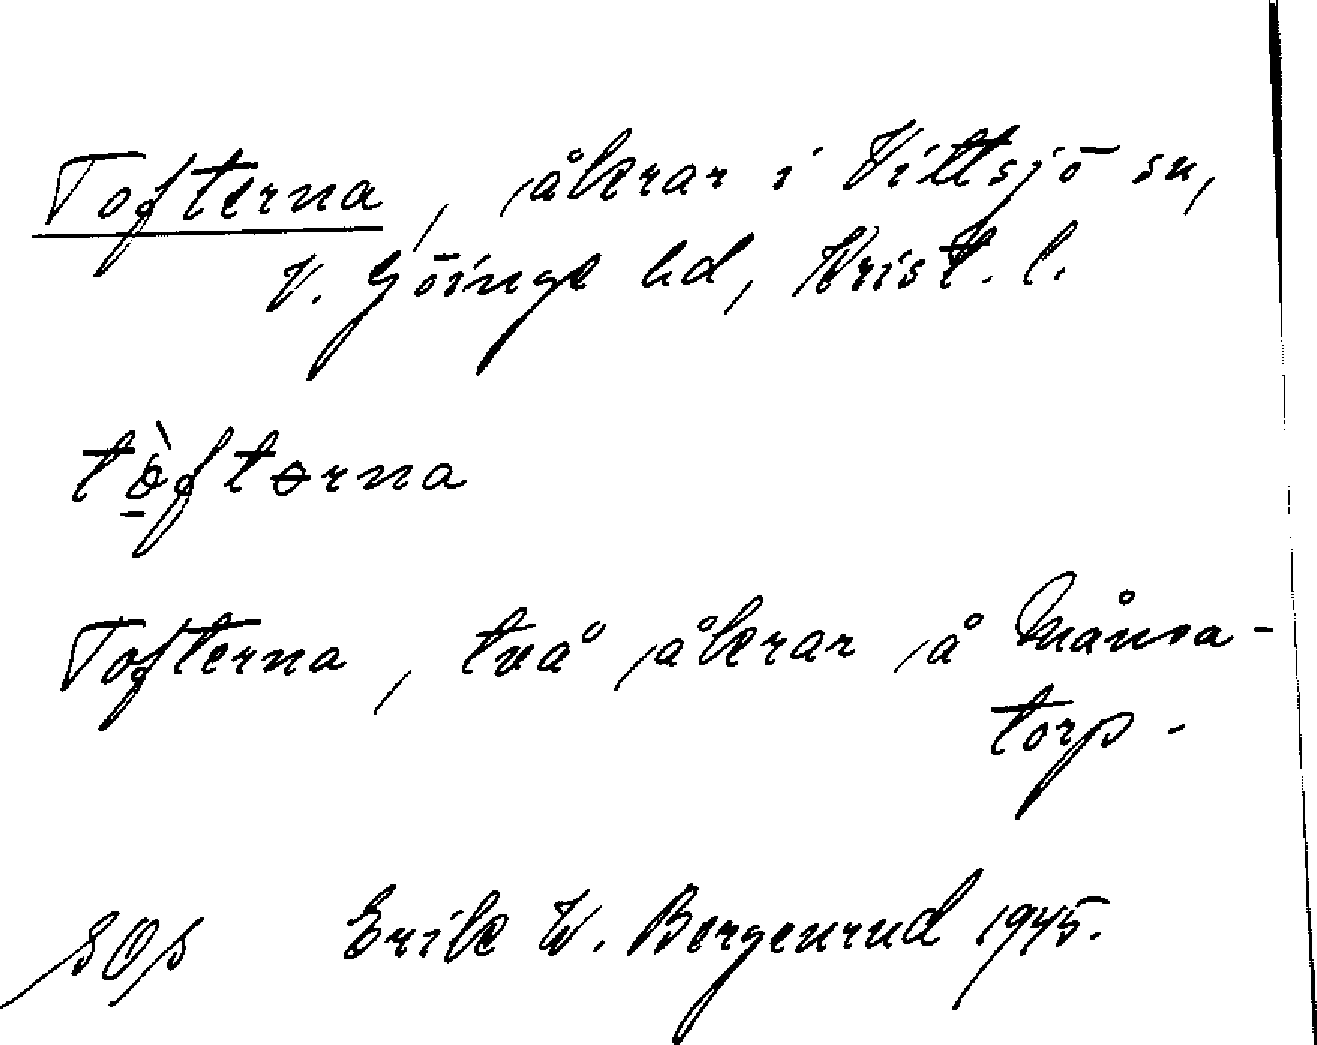 Tofterna, åkrar i Vittsjö sn,
V. Göinge hd, Krist. l.
tò̱ftərna
Tofterna, två åkrar å Månsa-
torp -
SOS Erik W. Bergenrud 1945.